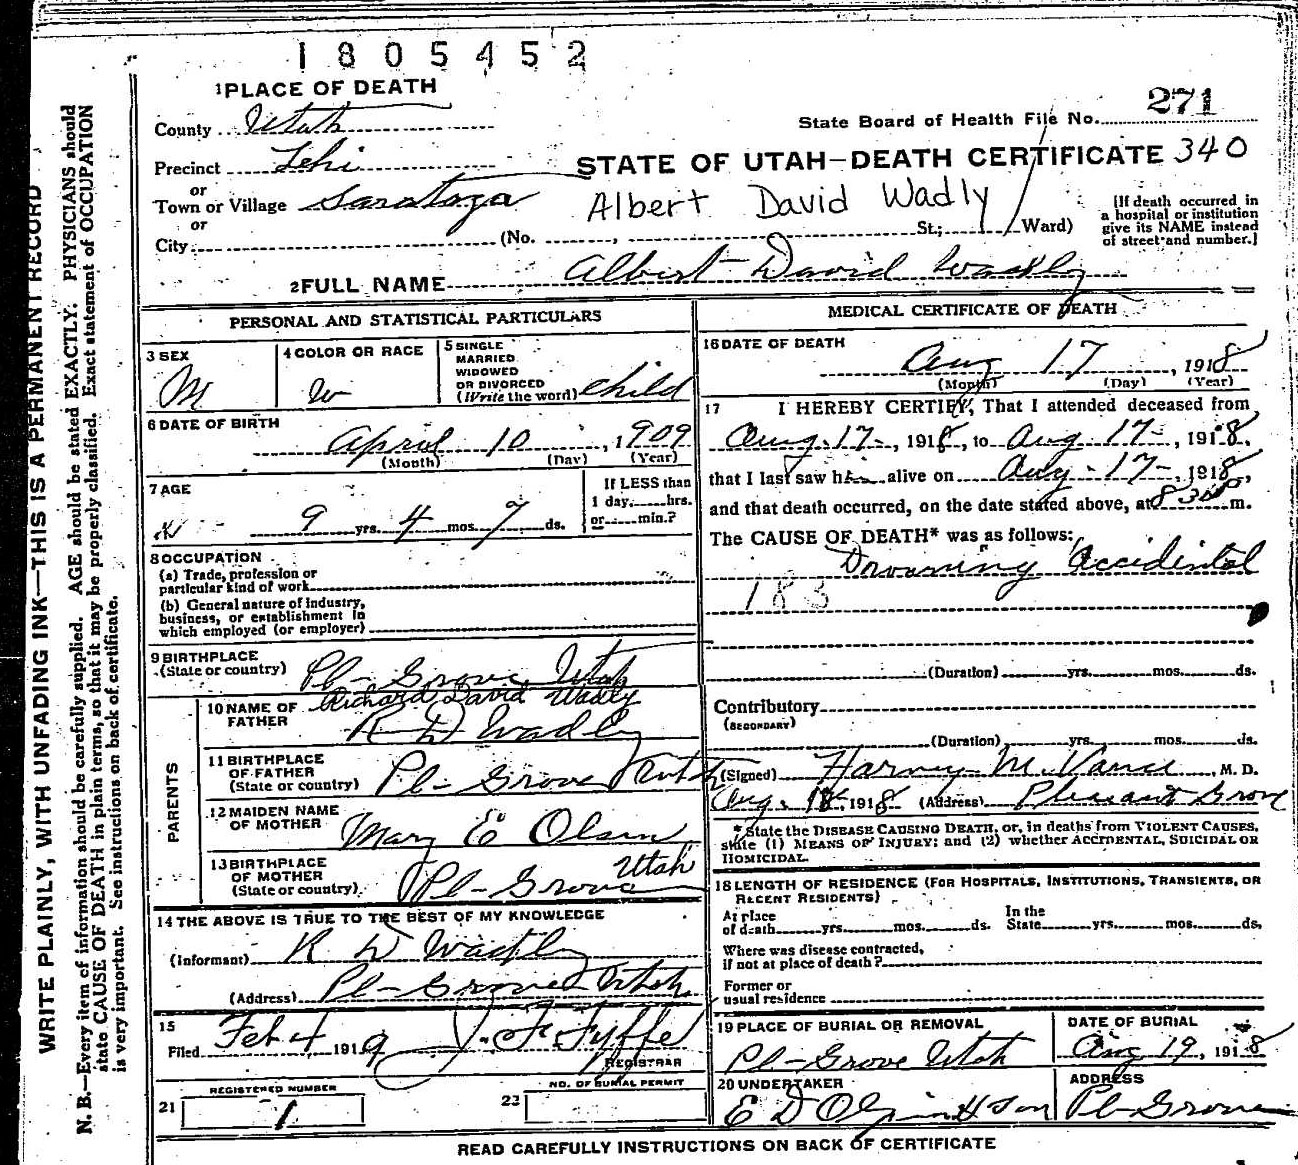 1805452
1 PLACE OF DEATH
County Utah
State Board of Health File No. 271
Precinct Lehi
STATE OF UTAH—DEATH CERTIFICATE 340
or
Town or Village Saratoga
Albert David Wadly
or
City (No. , St.; Ward)
[If death occurred in
a hospital or institution
give its NAME instead
of street and number.]
2 FULL NAME Albert David Wadly
PERSONAL AND STATISTICAL PARTICULARS
3 SEX
M
4 COLOR OR RACE
W
5 SINGLE
MARRIED
WIDOWED
OR DIVORCED
(Write the word) child
6 DATE OF BIRTH
April 10, 1909
(Month) (Day) (Year)
7 AGE
9 yrs. 4 mos. 7 ds.
If LESS than
1 day, hrs.
or min.?
8 OCCUPATION
(a) Trade, profession or
particular kind of work
(b) General nature of industry,
business, or establishment in
which employed (or employer)
9 BIRTHPLACE
(State or country) Pl-Grove Utah
PARENTS
10 NAME OF
FATHER
Richard David Wadly
R D Wadly
11 BIRTHPLACE
OF FATHER
(State or country) Pl-Grove Utah
12 MAIDEN NAME
OF MOTHER Mary E Olsen
13 BIRTHPLACE
OF MOTHER
(State or country) Pl-Grove Utah
14 THE ABOVE IS TRUE TO THE BEST OF MY KNOWLEDGE
(Informant) R D Wadly
(Address) Pl-Grove Utah
15
Filed Feb 4 1919 J. F. Fyffe
REGISTRAR
REGISTERED NUMBER
21 1
NO. OF BURIAL PERMIT
22
MEDICAL CERTIFICATE OF DEATH
16 DATE OF DEATH
Aug 17, 1918
(Month) (Day) (Year)
17 I HEREBY CERTIFY, That I attended deceased from
Aug-17-, 1918, to Aug 17-, 1918,
that I last saw him alive on Aug-17-, 1918,
and that death occurred, on the date stated above, at 830 m.
The CAUSE OF DEATH* was as follows:
Drowning Accidental
183
(Duration) yrs. mos. ds.
Contributory
(SECONDARY)
(Duration) yrs. mos. ds.
(Signed) Harvey M. Vance, M. D.
Aug. 18 1918 (Address) Pleasant Grove
* State the DISEASE CAUSING DEATH, or, in deaths from VIOLENT CAUSES,
state (1) MEANS OF INJURY; and (2) whether ACCIDENTAL, SUICIDAL OR
HOMICIDAL.
18 LENGTH OF RESIDENCE (FOR HOSPITALS, INSTITUTIONS, TRANSIENTS, OR
RECENT RESIDENTS)
At place
of death yrs. mos. ds.
In the
State yrs. mos. ds.
Where was disease contracted,
if not at place of death?
Former or
usual residence
19 PLACE OF BURIAL OR REMOVAL
Pl-Grove Utah
DATE OF BURIAL
Aug 19, 1918
20 UNDERTAKER
E D Olpin & Son
ADDRESS
Pl-Grove
READ CAREFULLY INSTRUCTIONS ON BACK OF CERTIFICATE
WRITE PLAINLY, WITH UNFADING INK—THIS IS A PERMANENT RECORD
N. B.—Every item of information should be carefully supplied. AGE should be stated EXACTLY. PHYSICIANS should
state CAUSE OF DEATH in plain terms, so that it may be properly classified. Exact statement of OCCUPATION
is very important. See instructions on back of certificate.